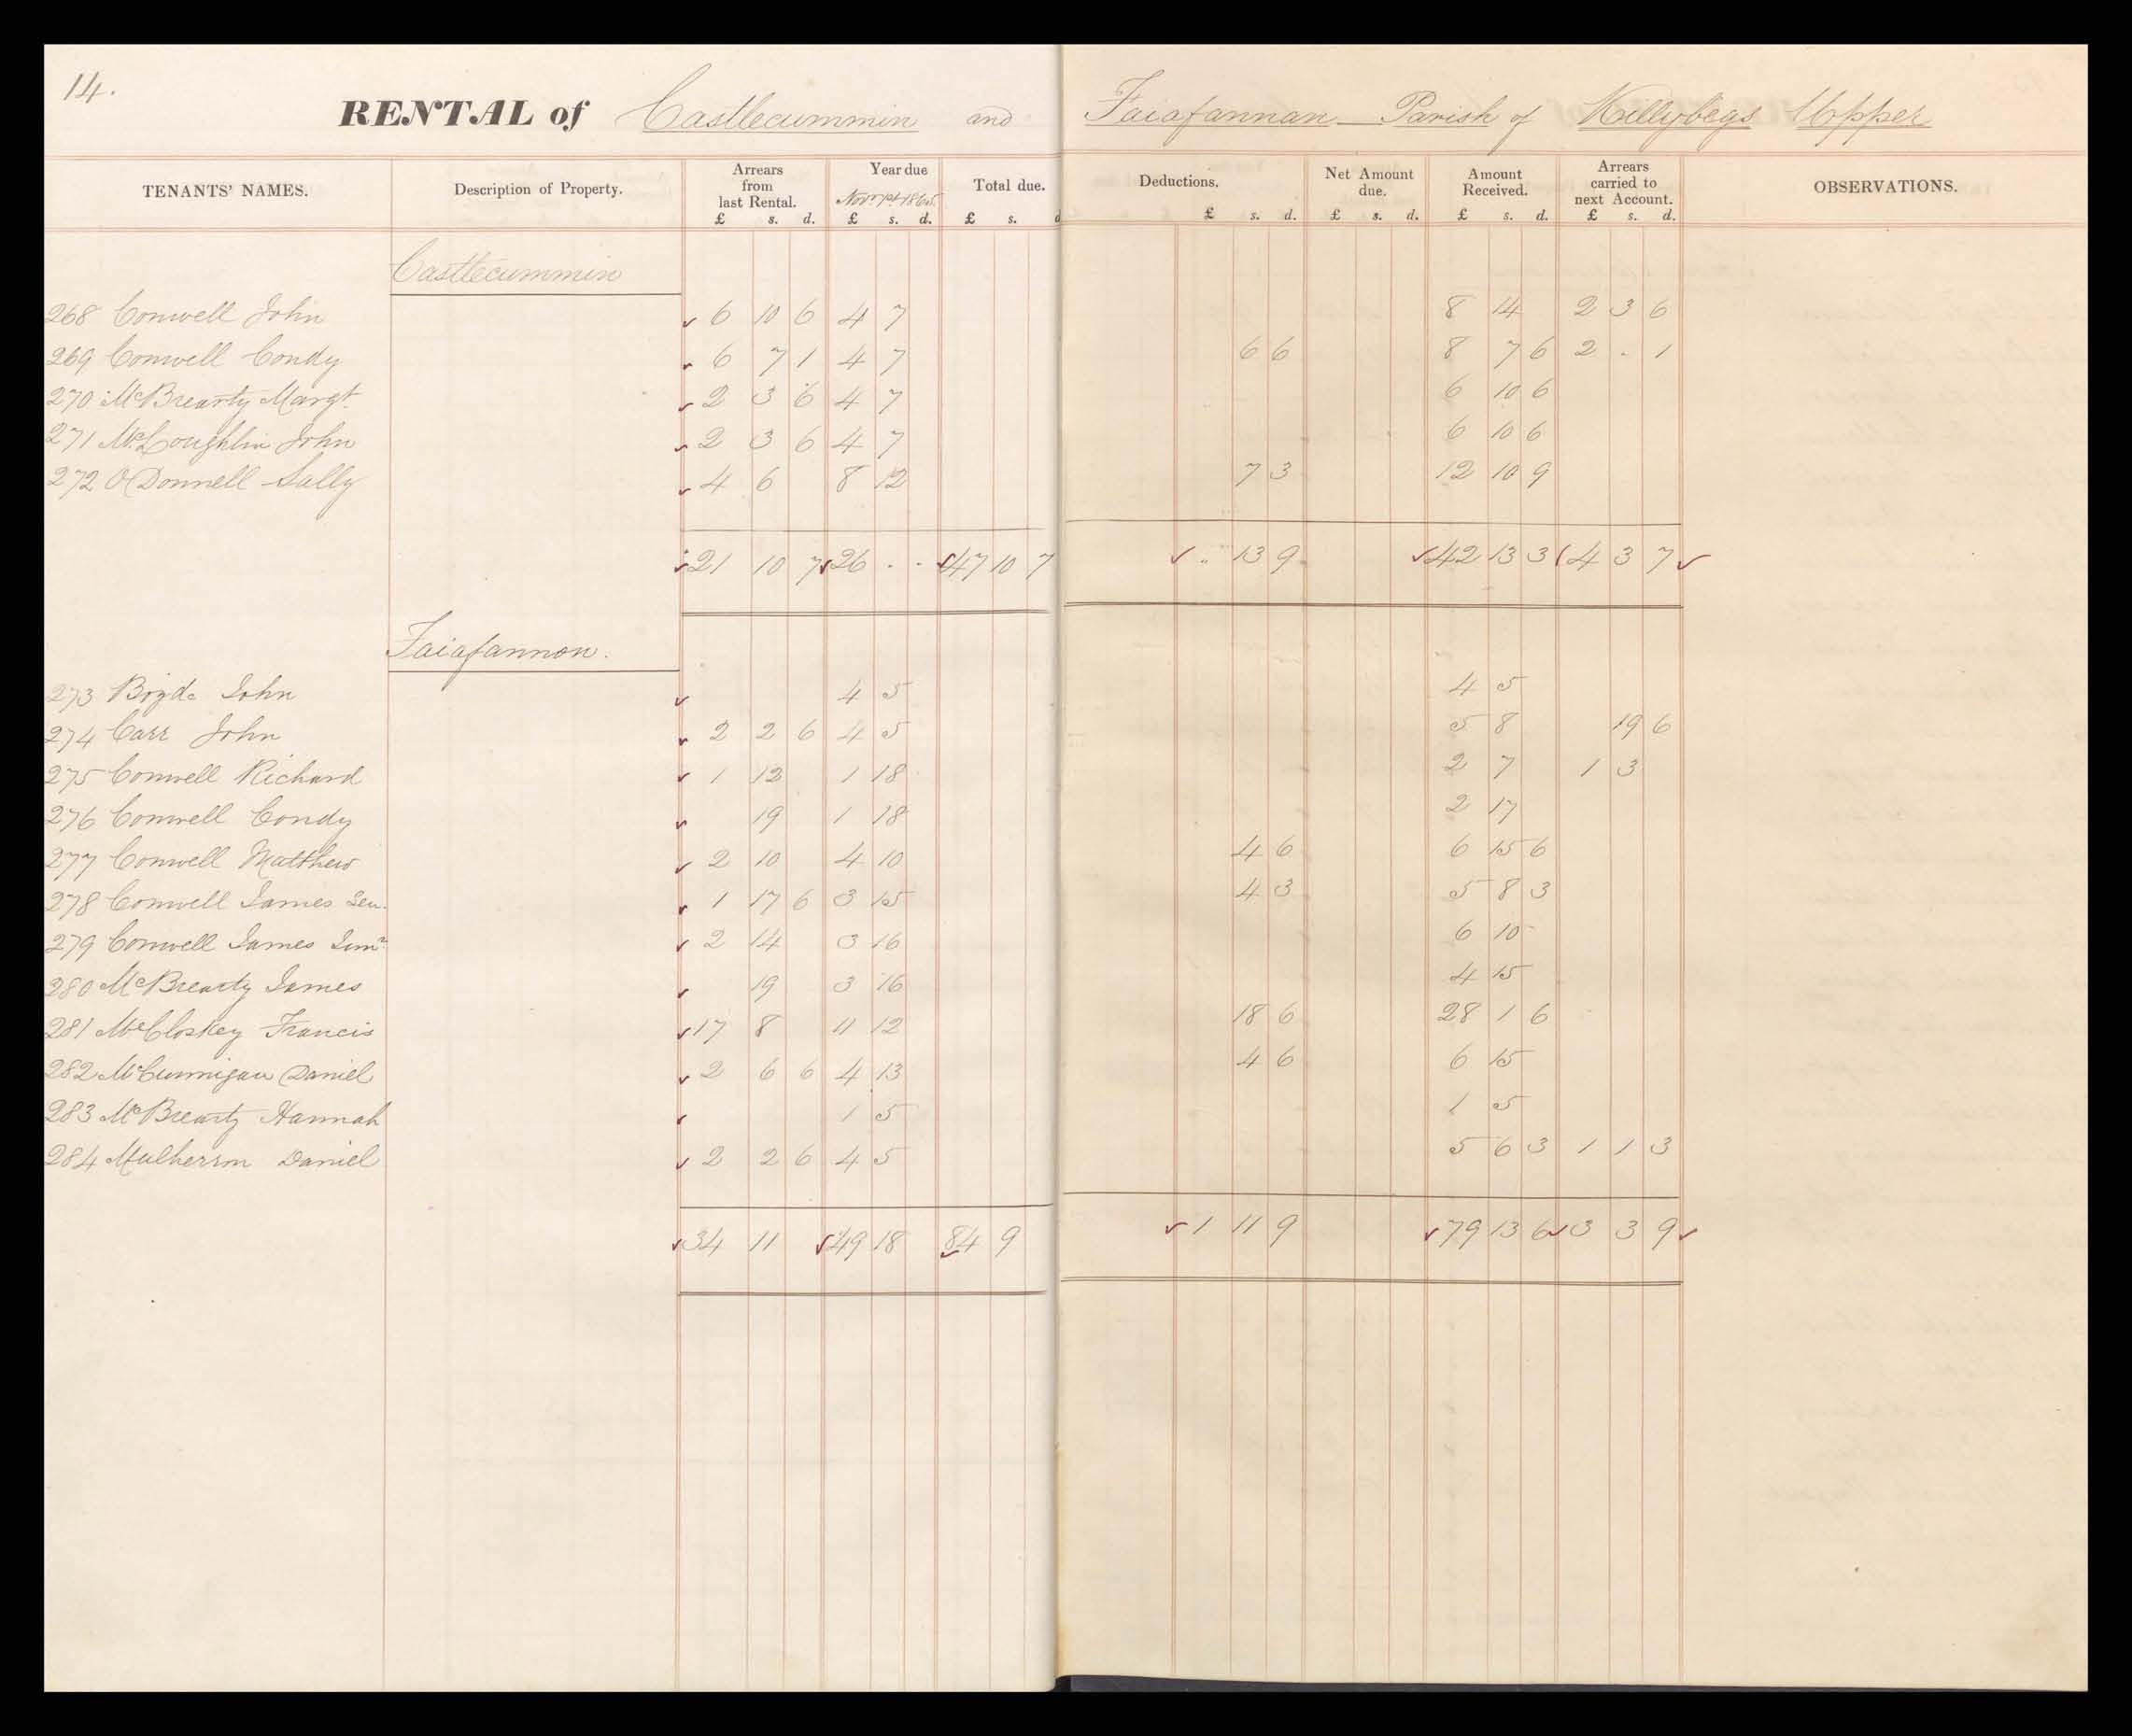 14.
RENTAL of Castlecummin and Faiafannan — Parish of Killybegs Upper
TENANTS' NAMES. Description of Property. Arrears from last Rental. £ s. d. Year due Novr 1st 1865. £ s. d. Total due. £ s. d Deductions. £ s. d. Net Amount due. £ s. d. Amount Received. £ s. d. Arrears carried to next Account. £ s. d. OBSERVATIONS.
Castlecummin
268 Conwell John 6 10 6 4 7 8 14 2 3 6
269 Conwell Condy 6 7 1 4 7 6 6 8 7 6 2 . 1
270 McBrearty Margt. 2 3 6 4 7 6 10 6
271 McLoughlin John 2 3 6 4 7 6 10 6
272 O'Donnell Sally 4 6 8 12 7 3 12 10 9
21 10 7 26 . . 47 10 7 .. 13 9 42 13 3 4 3 7
Faiafannon.
273 Boyde John 4 5 4 5
274 Carr John 2 2 6 4 5 5 8 19 6
275 Conwell Richard 1 12 1 18 2 7 1 3
276 Conwell Condy 19 1 18 2 17
277 Conwell Matthew 2 10 4 10 4 6 6 15 6
278 Conwell James Sen. 1 17 6 3 15 4 3 5 8 3
279 Conwell James Junr 2 14 3 16 6 10
280 McBrearty James 19 3 16 4 15
281 McCloskey Francis 17 8 11 12 18 6 28 1 6
282 McCunnigan Daniel 2 6 6 4 13 4 6 6 15
283 McBrearty Hannah 1 5 1 5
284 Mulherrn Daniel 2 2 6 4 5 5 6 3 1 1 3
34 11 49 18 84 9 1 11 9 79 13 6 3 3 9